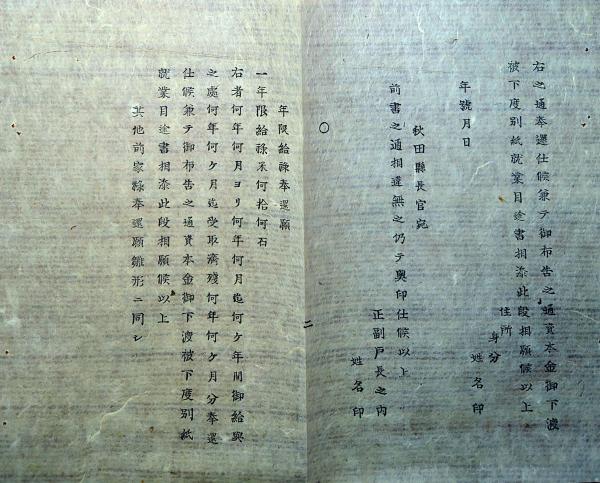 右之通奉還仕候兼テ御布告之通資本金御下渡
被下度別紙就業目途書相添此段相願候以上
住所
身分
姓名印
年號月日
秋田縣長官宛
前書之通相違無之仍テ奥印仕候以上
正副戸長之内
姓名印
二
〇
年限給祿奉還願
一年限給祿米何拾何石
右者何年何月ヨリ何年何月迄何ケ年間御給與
之處何年何ケ月迄受取濟殘何年何ケ月分奉還
仕候兼テ御布告之通資本金御下渡被下度別紙
就業目途書相添此段相願候以上
其他前家祿奉還願雛形ニ同シ